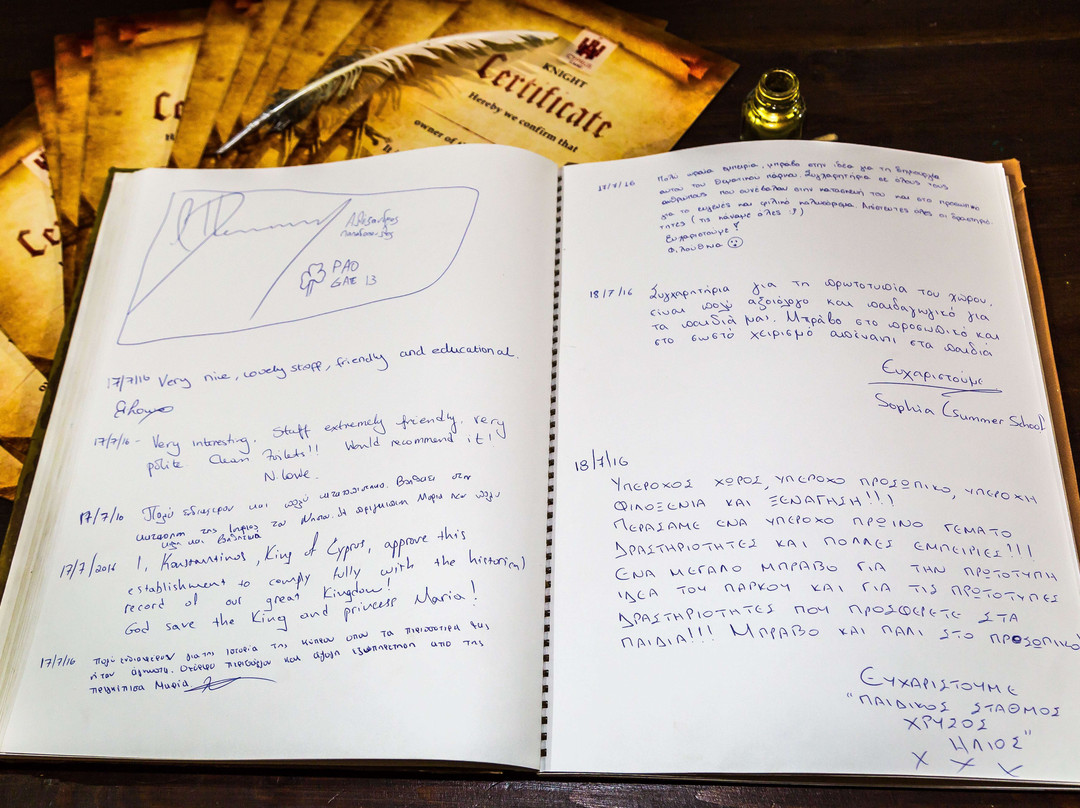 KNIGHT
Certificate
Hereby we confirm that
owner of
Ce
Ce
Αλέξανδρος
ΡΑΟ
GATE 13
17/7/16 Very nice, lovely staff, friendly and educational.
17/7/16 - Very interesting. Staff extremely friendly. very
polite Clean Toilets!! Would recommend it!
N. Lowe.
17/7/16 Πολύ ενδιαφέρον και πολύ κατατοπιστικό. Βοηθάει στην
της Ιστορίας του Νησιού. Η πριγκίπισσα Μαρία ήταν πολύ
και βοηθητική
17/7/2016 I, Konstantinos, King of Cyprus, approve this
establishment to comply fully with the historical
record of our great Kingdom!
God save the King and princess Maria!
17/7/16 Πολύ ενδιαφέρον για της ιστορία της Κύπρου όπου τα περισσότερα μας
ήταν άγνωστα. Όμορφο περιβάλλον και άψογη εξυπηρέτηση από της
πριγκίπισα Μαρία
17/7/16 Πολύ ωραία εμπειρία, μπράβο στην ιδέα για τη δημιουργία
αυτού του θεματικού πάρκου. Συγχαρητήρια σε όλους τους
ανθρώπους που συνέβαλαν στην κατασκευή του και στο προσωπικό
για το ευγενές και φιλικό καλωσόρισμα. Απίστευτες όλες οι δραστηριό-
τητες (τις κάναμε όλες !)
Ευχαριστούμε!
Φ. Λουθινα
18/7/16 Συγχαρητήρια για τη πρωτοτυπία του χώρου,
είναι πολύ αξιόλογο και παιδαγωγικό για
τα παιδιά μας. Μπράβο στο προσωπικό και
στο σωστό χειρισμό απέναντι στα παιδιά
Ευχαριστούμε
Sophia (Summer School
18/7/16
ΥΠΕΡΟΧΟΣ ΧΩΡΟΣ, ΥΠΕΡΟΧΟ ΠΡΟΣΩΠΙΚΟ, ΥΠΕΡΟΧΗ
ΦΙΛΟΞΕΝΙΑ ΚΑΙ ΞΕΝΑΓΗΣΗ!!!
ΠΕΡΑΣΑΜΕ ΕΝΑ ΥΠΕΡΟΧΟ ΠΡΩΙΝΟ ΓΕΜΑΤΟ
ΔΡΑΣΤΗΡΙΟΤΗΤΕΣ ΚΑΙ ΠΟΛΛΕΣ ΕΜΠΕΙΡΙΕΣ!!!
ΕΝΑ ΜΕΓΑΛΟ ΜΠΡΑΒΟ ΓΙΑ ΤΗΝ ΠΡΩΤΟΤΥΠΗ
ΙΔΕΑ ΤΟΥ ΠΑΡΚΟΥ ΚΑΙ ΓΙΑ ΤΙΣ ΠΡΩΤΟΤΥΠΕΣ
ΔΡΑΣΤΗΡΙΟΤΗΤΕΣ ΠΟΥ ΠΡΟΣΦΕΡΕΤΕ ΣΤΑ
ΠΑΙΔΙΑ!!! ΜΠΡΑΒΟ ΚΑΙ ΠΑΛΙ ΣΤΟ ΠΡΟΣΩΠΙΚΟ
ΕΥΧΑΡΙΣΤΟΥΜΕ
"ΠΑΙΔΙΚΟΣ ΣΤΑΘΜΟΣ
ΧΡΥΣΟΣ
ΗΛΙΟΣ"
X X X